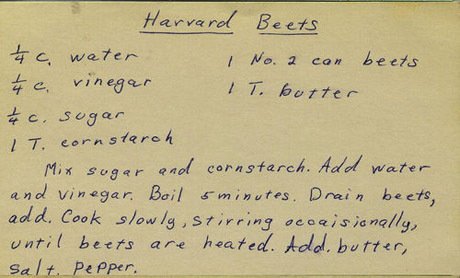 Harvard Beets
¼ c. water 1 No. 2 can beets
¼ c. vinegar 1 T. butter
¼ c. sugar
1 T. cornstarch
Mix sugar and cornstarch. Add water
and vinegar. Boil 5 minutes. Drain beets,
add. Cook slowly, stirring occaisionally,
until beets are heated. Add. butter,
salt. pepper.